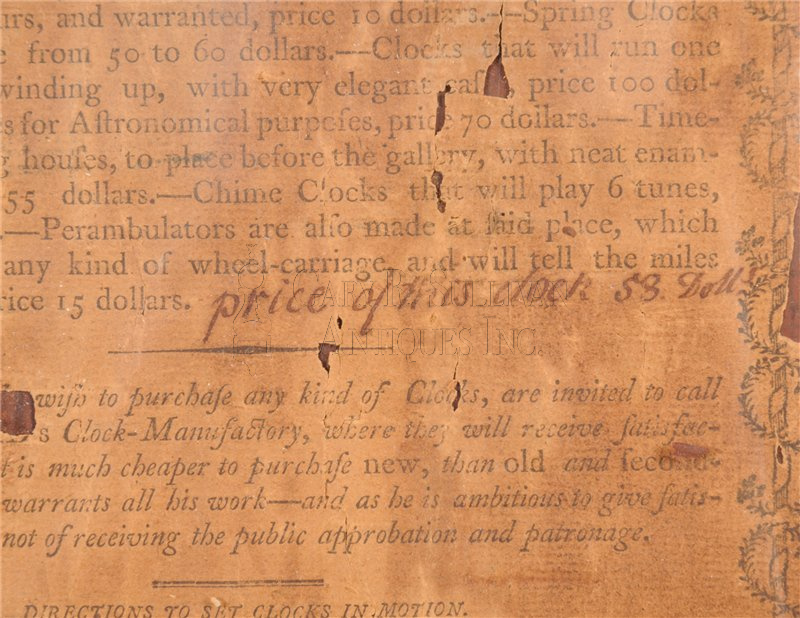 urs, and warranted, price 10 dollars.—Spring Clocks
e from 50 to 60 dollars.—Clocks that will run one
winding up, with very elegant case, price 100 dol-
s for Aſtronomical purpoſes, price 70 dollars.—Time-
g houſes, to place before the gallery, with neat enam-
55 dollars.—Chime Clocks that will play 6 tunes,
.—Perambulators are alſo made at ſaid place, which
any kind of wheel-carriage, and will tell the miles
rice 15 dollars. price of this clock 58 Doll
Gary R. Sullivan
Antiques Inc.
wiſh to purchaſe any kind of Clocks, are invited to call
s Clock-Manufactory, where they will receive ſatisfac-
t is much cheaper to purchaſe new, than old and ſecond-
warrants all his work—and as he is ambitious to give ſatis-
not of receiving the public approbation and patronage.
DIRECTIONS TO SET CLOCKS IN MOTION.